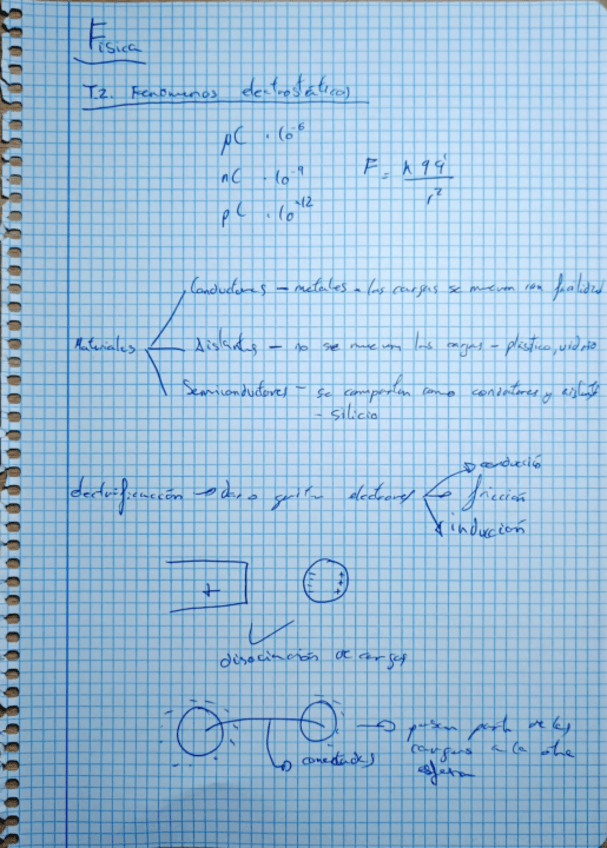 Física
T.2. Fenómenos electrostáticos
μC · 10⁻⁶
nC · 10⁻⁹
F = k q q' / r²
pC · 10⁻¹²
Conductores – metales – las cargas se mueven con facilidad
Materiales
Aislantes – no se mueven las cargas – plástico, vidrio
Semiconductores – se comportan como conductores y aislante
- silicio
conducció
electrificación → dar o quitar electrones → fricción
inducción
+
- - - + + +
disociación de cargas
→ pasan parte de las
cargas a la otra
esfera
conectadas